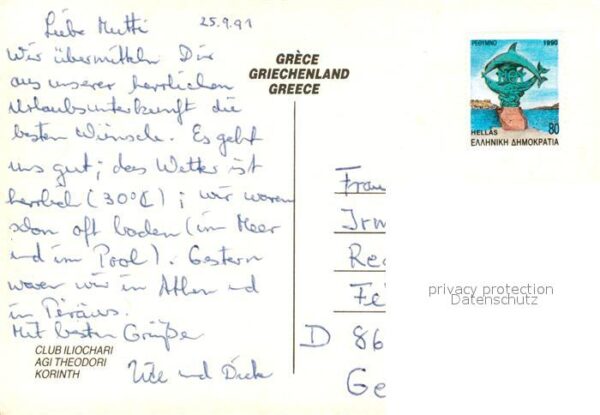 25.9.91
Liebe Mutti
Wir übermitteln Dir
aus unserer herrlichen
Urlaubsunterkunft die
besten Wünsche. Es geht
uns gut; das Wetter ist
herrlich (30°C); wir waren
schon oft baden (im Meer
und im Pool). Gestern
waren wir in Athen und
in Piräus.
Mit besten Grüße
Ute und Dick
CLUB ILIOCHARI
AGI THEODORI
KORINTH
GRÈCE
GRIECHENLAND
GREECE
ΡΕΘΥΜΝΟ 1990
HELLAS 80
ΕΛΛΗΝΙΚΗ ΔΗΜΟΚΡΑΤΙΑ
Frau
Irm
Re
Fe
D 86
Ge
privacy protection
Datenschutz